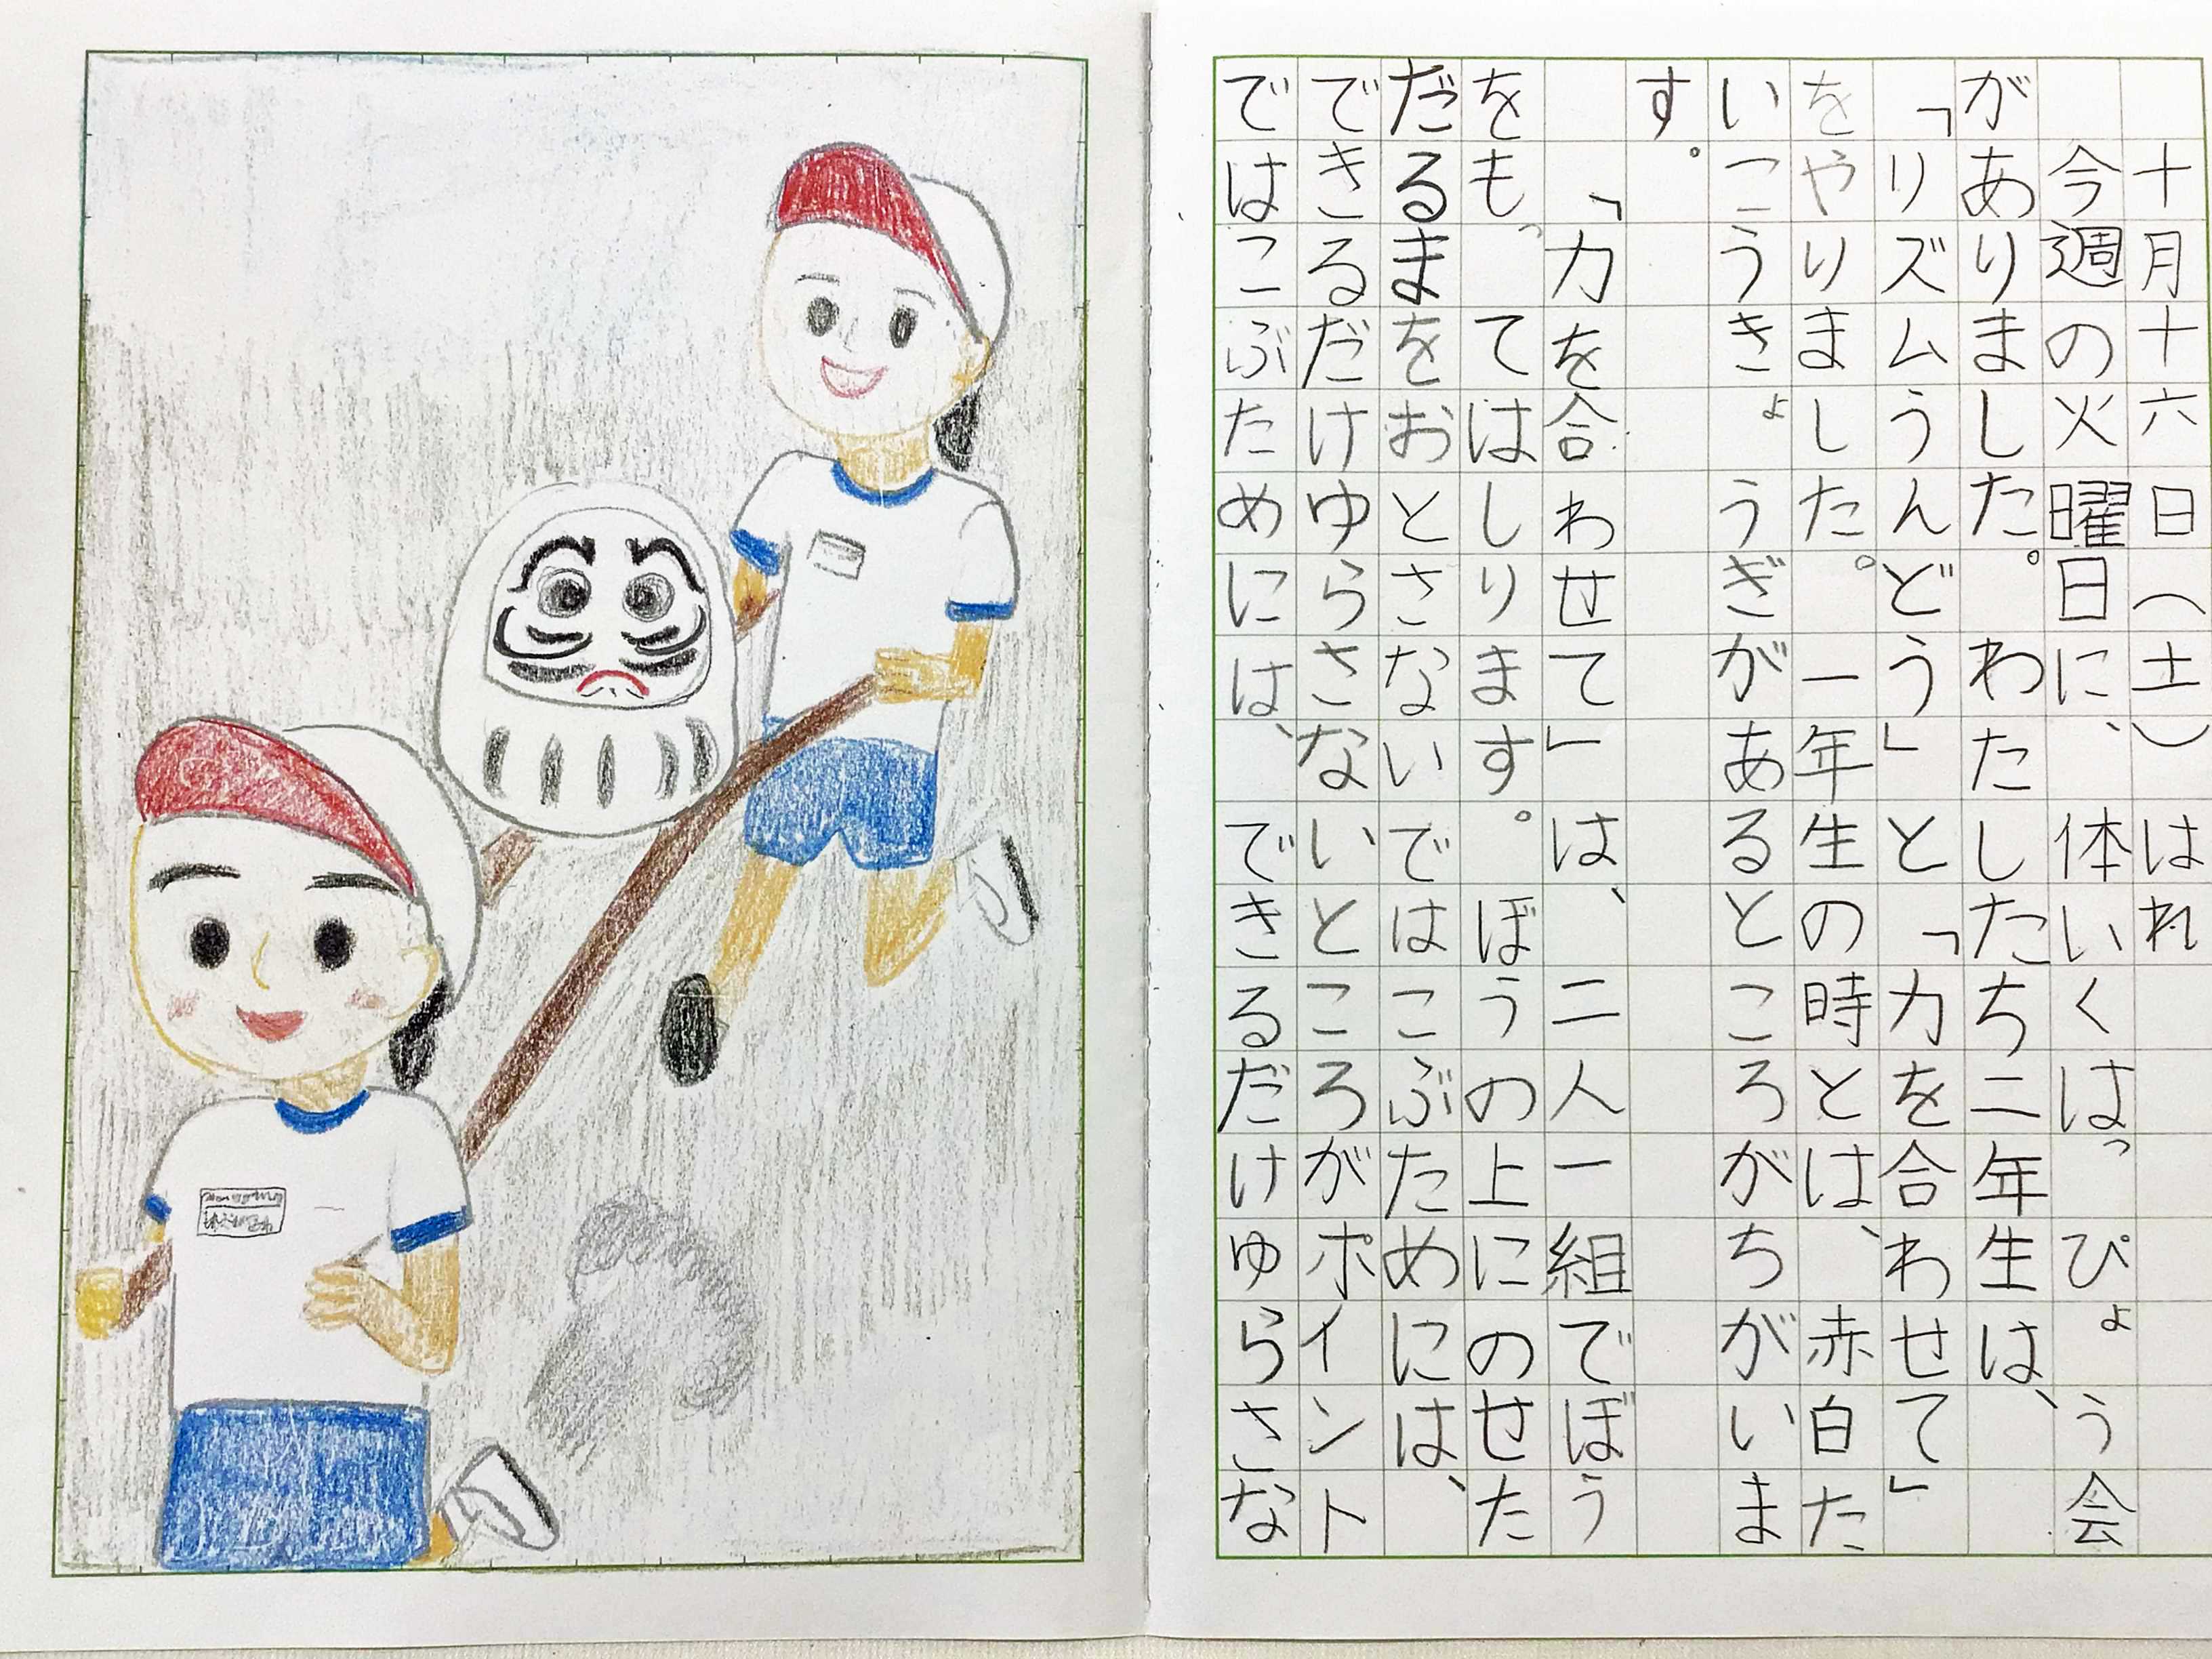 十月十六日（土）はれ
今週の火曜日に、体いくはっぴょう会
がありました。わたしたち二年生は、
「リズムうんどう」と「力を合わせて」
をやりました。一年生の時とは、赤白た
いこうきょうぎがあるところがちがいま
す。
「力を合わせて」は、二人一組でぼう
をもってはしります。ぼうの上にのせた
だるまをおとさないではこぶためには、
できるだけゆらさないところがポイント
ではこぶためには、できるだけゆらさな